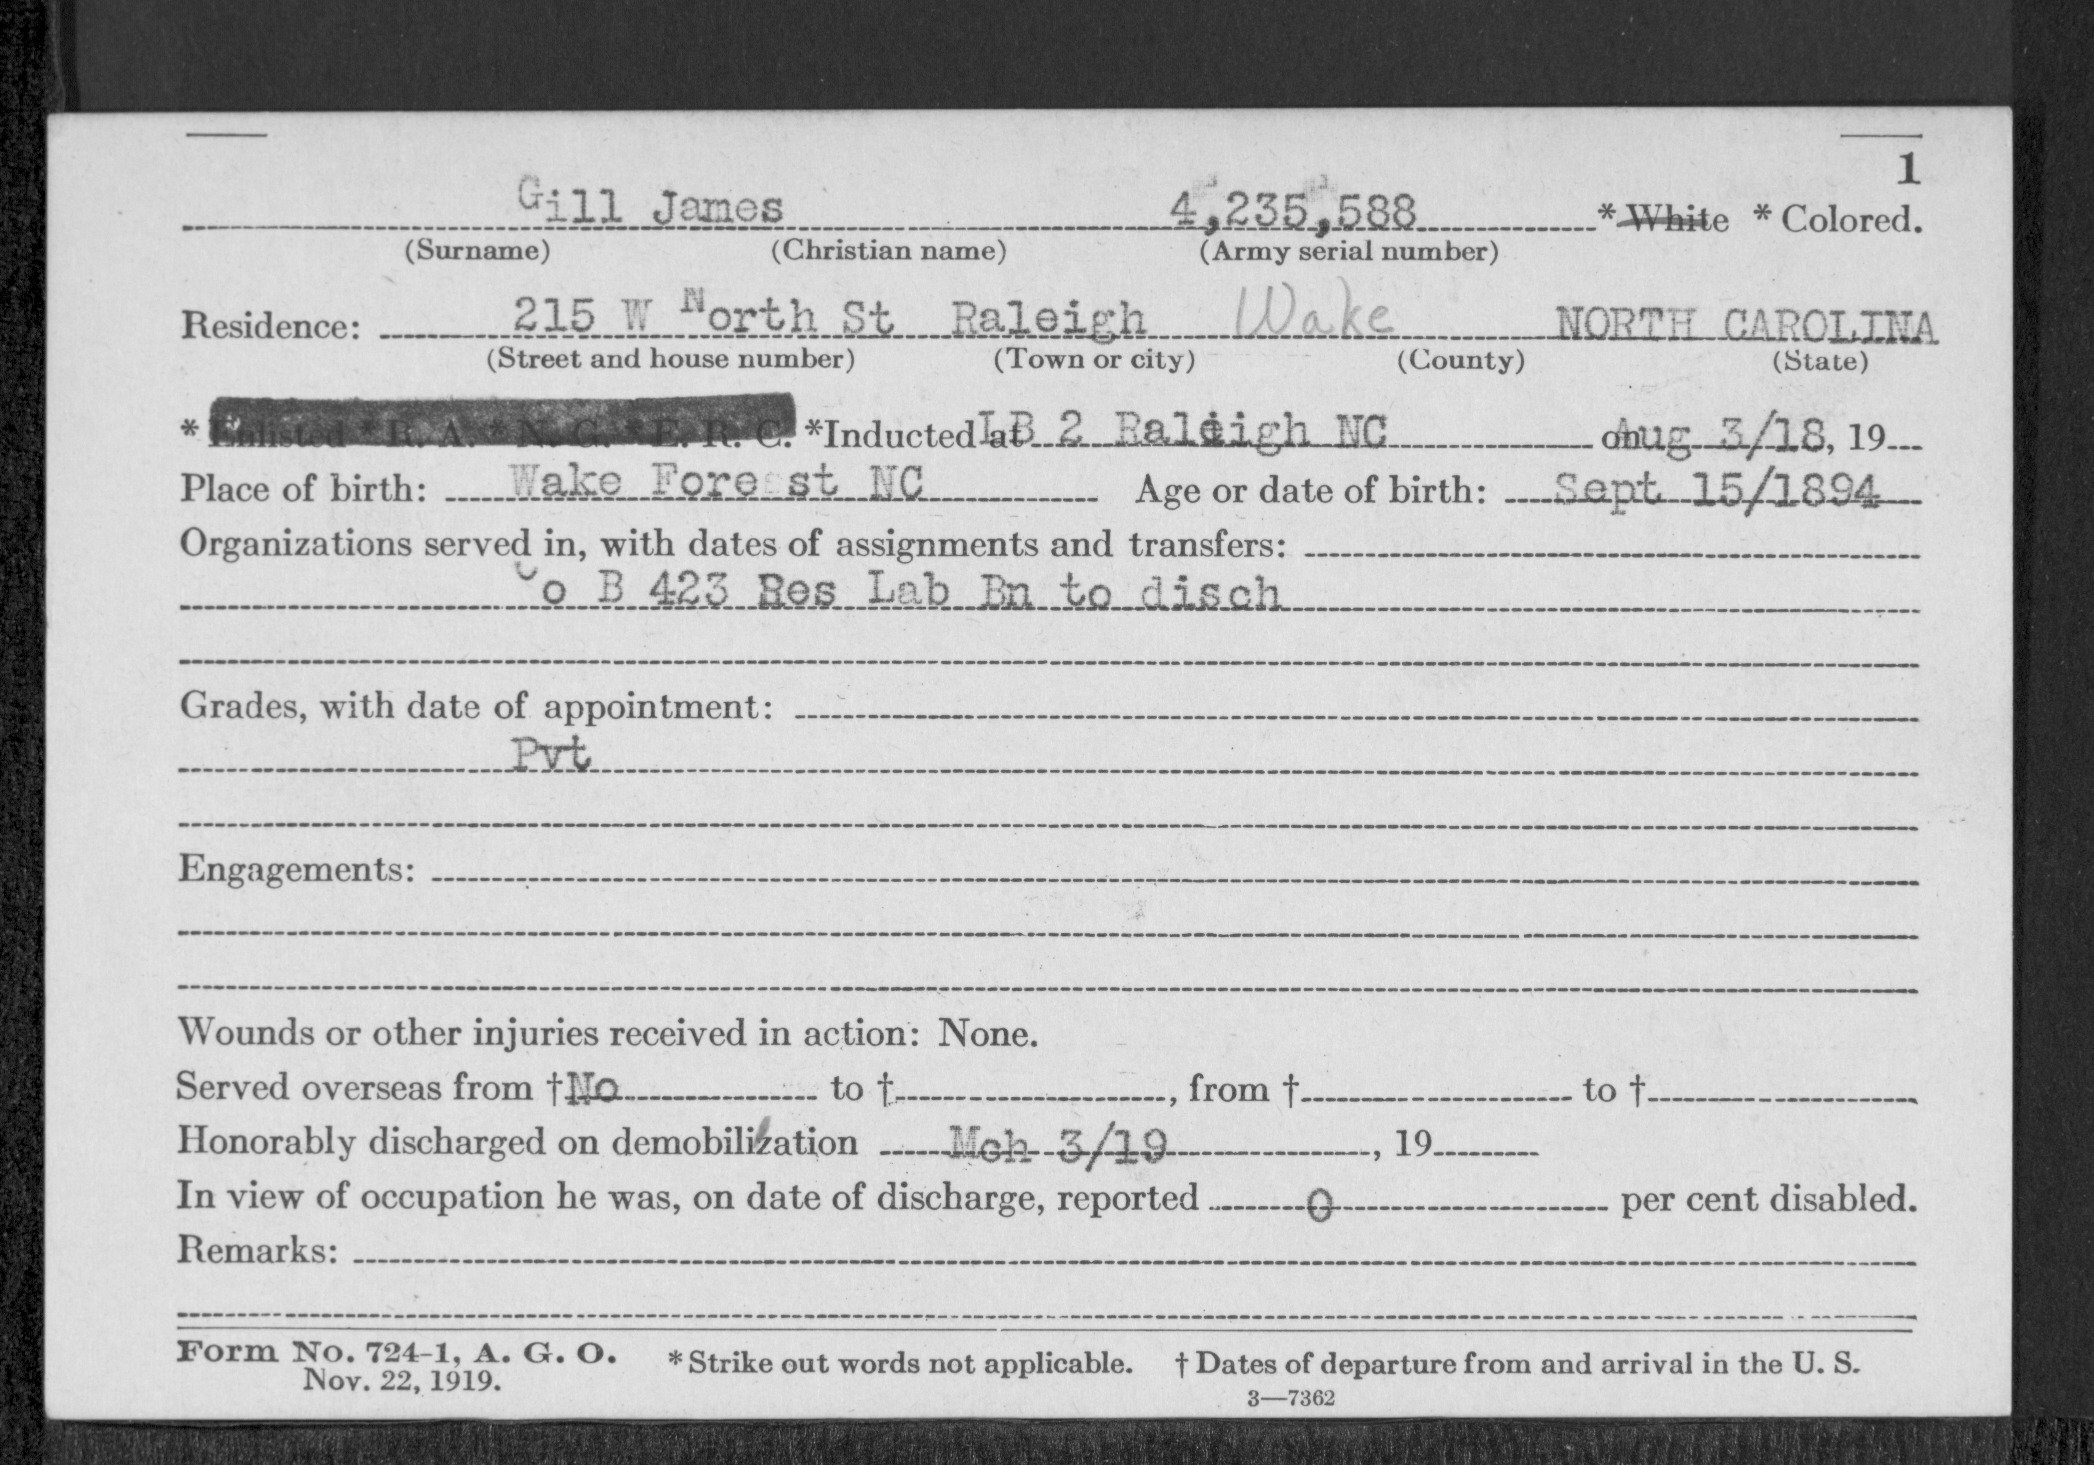 1
Gill James 4,235,588 * White * Colored.
(Surname) (Christian name) (Army serial number)
Residence: 215 W North St Raleigh Wake NORTH CAROLINA
(Street and house number) (Town or city) (County) (State)
* Enlisted * R. A. * N. G. * E. R. C. *Inducted at LB 2 Raleigh NC on Aug 3/18, 19
Place of birth: Wake Forest NC Age or date of birth: Sept 15/1894
Organizations served in, with dates of assignments and transfers:
Co B 423 Res Lab Bn to disch
Grades, with date of appointment:
Pvt
Engagements:
Wounds or other injuries received in action: None.
Served overseas from †No to †, from † to †
Honorably discharged on demobilization Mch 3/19, 19
In view of occupation he was, on date of discharge, reported 0 per cent disabled.
Remarks:
Form No. 724-1, A. G. O. * Strike out words not applicable. † Dates of departure from and arrival in the U. S.
Nov. 22, 1919.
3—7362